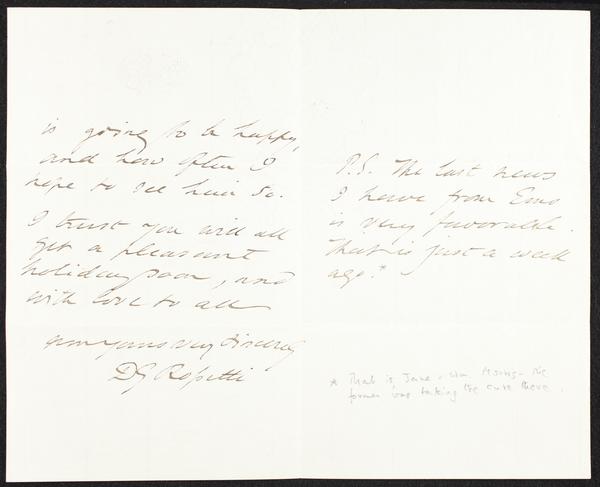 is going to be happy,
and how often I
hope to see him so.
I trust you will all
get a pleasant
holiday soon, and
with love to all
am yours very sincerely
DG Rossetti
P.S. The last news
I have from Ems
is very favorable.
That is just a week
ago.*
* That is, Jane & Wm Morris - the
former was taking the cure there.